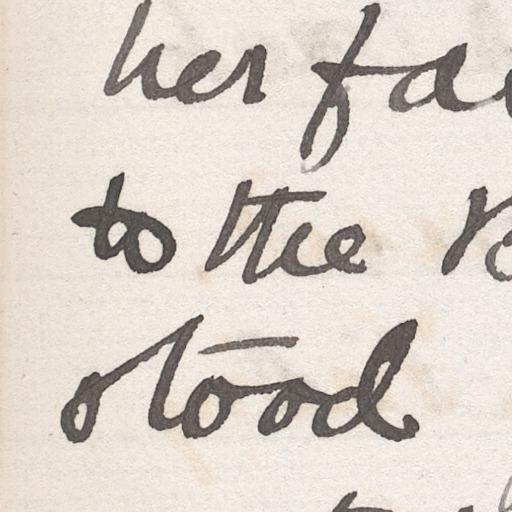 her fa
to the
stood